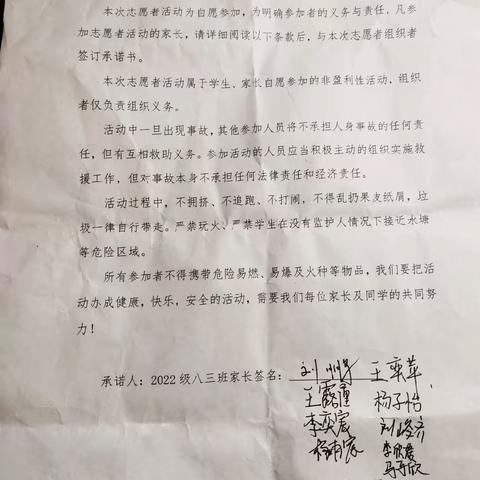 本次志愿者活动为自愿参加，为明确参加者的义务与责任，凡参
加志愿者活动的家长，请详细阅读以下条款后，与本次志愿者组织者
签订承诺书。
本次志愿者活动属于学生、家长自愿参加的非盈利性活动，组织
者仅负责组织义务。
活动中一旦出现事故，其他参加人员将不承担人身事故的任何责
任，但有互相救助义务。参加活动的人员应当积极主动的组织实施救
援工作，但对事故本身不承担任何法律责任和经济责任。
活动过程中，不拥挤、不追跑、不打闹，不得乱扔果皮纸屑，垃
圾一律自行带走。严禁玩火、严禁学生在没有监护人情况下接近水塘
等危险区域。
所有参加者不得携带危险易燃、易爆及火种等物品，我们要把活
动办成健康，快乐，安全的活动，需要我们每位家长及同学的共同努
力！
承诺人：2022级八三班家长签名： 刘 王奕苹
王露瞳 杨子怡
李奕宸 刘
杨雨宸 李欣